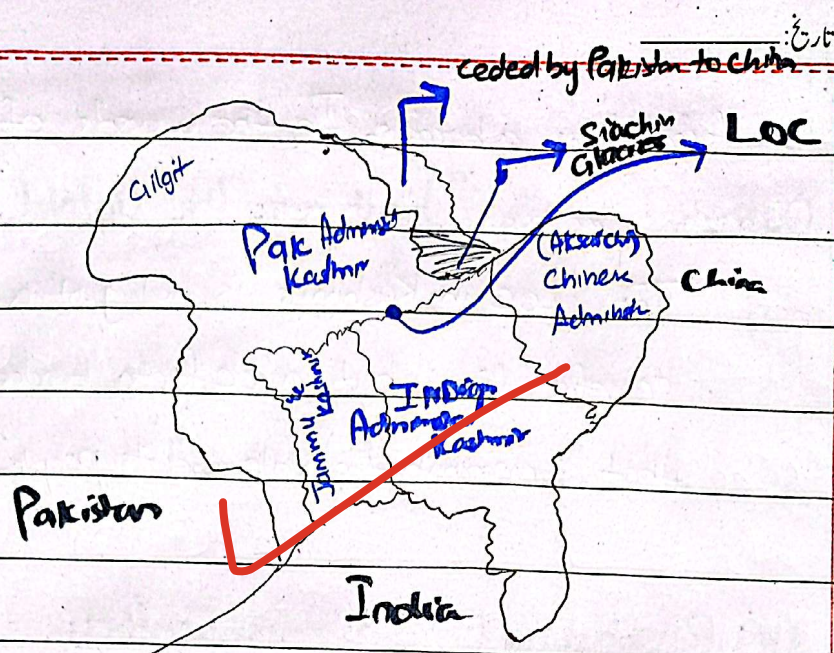 تاریخ:
ceded by Pakistan to China
Siachin
Glacier
LOC
Gilgit
Pak Administ
Kashmir
(Aksaichin)
Chinese
Administ
China
Jammu &
Kashmir
Indian
Administ
Kashmir
Pakistan
India